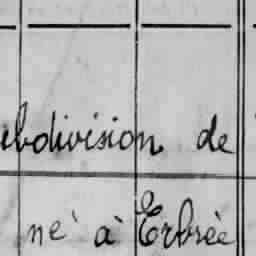 ubdivision de
né à Erbrée